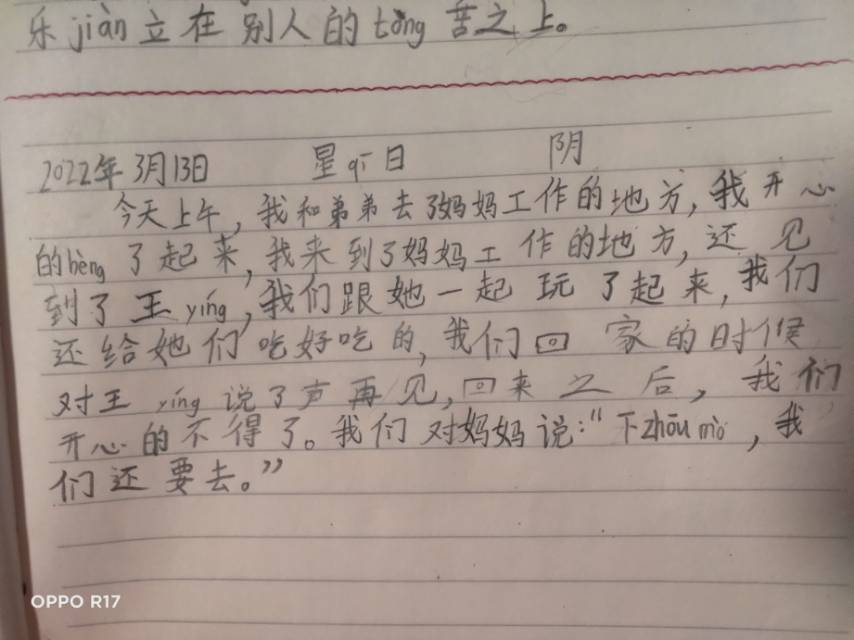 乐jiàn立在别人的tòng苦之上。
2022年3月13日 星qī日 阴
今天上午,我和弟弟去了妈妈工作的地方,我开心
的bèng了起来,我来到了妈妈工作的地方,还见
到了王yíng,我们跟她一起玩了起来,我们
还给她们吃好吃的,我们回家的时候
对王yíng说了声再见,回来之后,我们
开心的不得了。我们对妈妈说:“下zhōumò,我
们还要去。”
OPPO R17